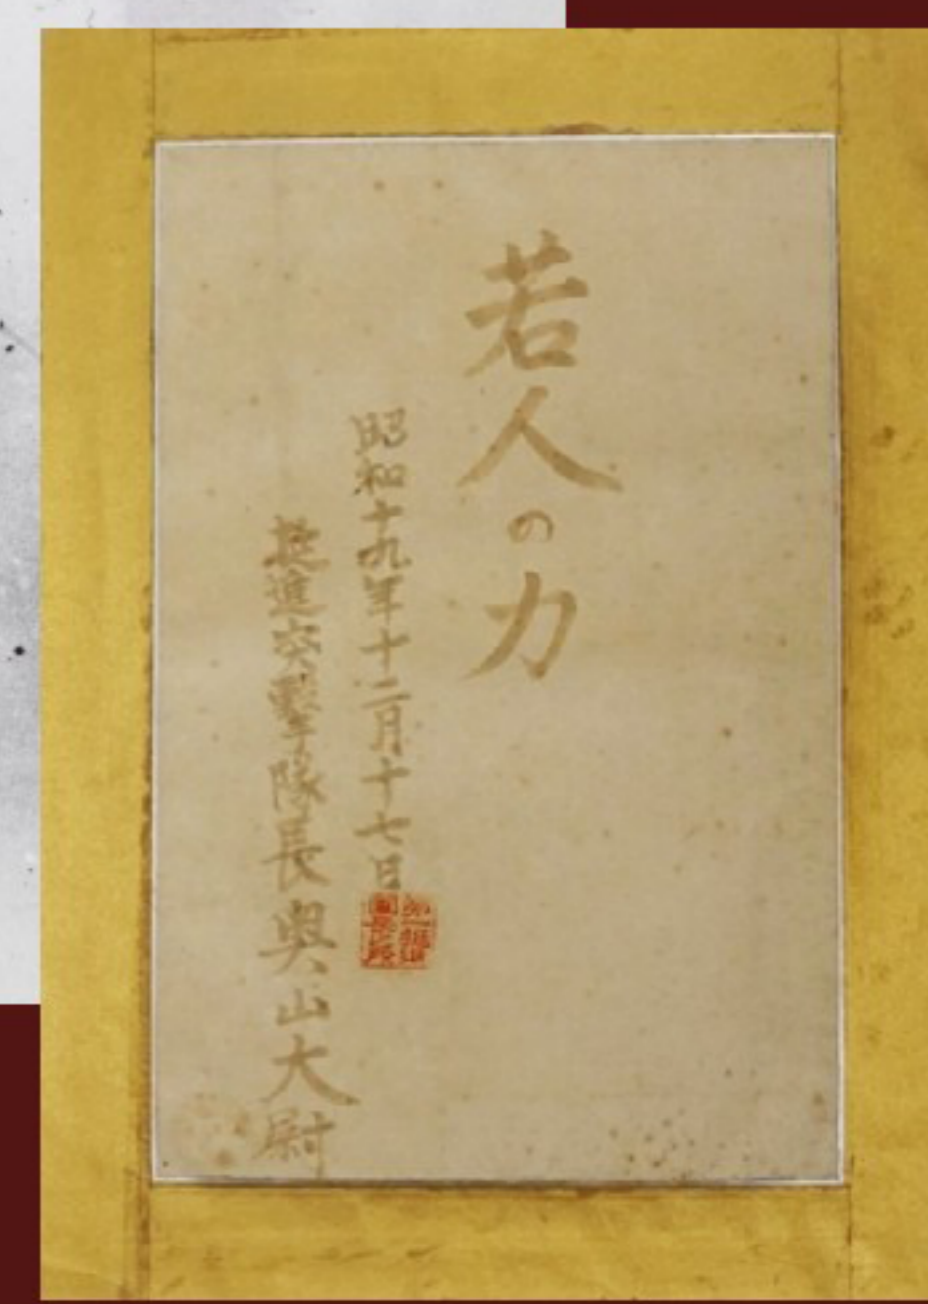 若人の力
昭和十九年十二月十七日
挺進突撃隊長 奥山大尉